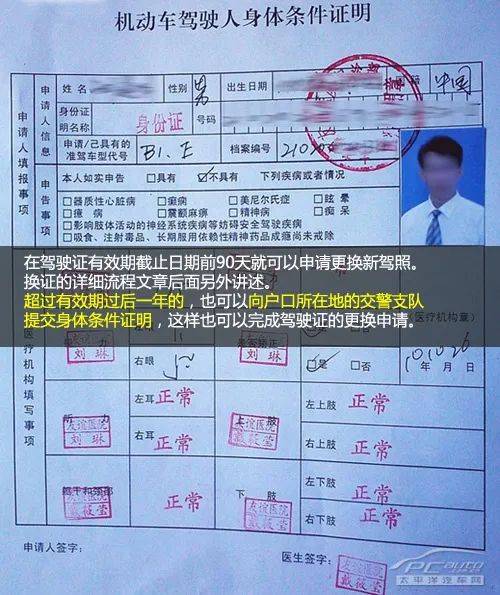 机动车驾驶人身体条件证明
申请人填报事项
申请人信息
姓名 性别 男 出生日期 国籍 中国
身份证明名称 身份证 号码
申请/已具有的准驾车型代号 B1.E 档案编号
申告事项
本人如实申告 □具有 ☑不具有 下列疾病或者情况
□器质性心脏病 □癫痫 □美尼尔氏症 □眩晕
□癔病 □震颤麻痹 □精神病 □痴呆
□影响肢体活动的神经系统疾病等妨碍安全驾驶疾病
□吸食、注射毒品、长期服用依赖性精神药品成瘾尚未戒除
在驾驶证有效期截止日期前90天就可以申请更换新驾照。
换证的详细流程文章后面另外讲述。
超过有效期过后一年的，也可以向户口所在地的交警支队
提交身体条件证明，这样也可以完成驾驶证的更换申请。
医疗机构填写事项
(医疗机构章)
刘琳 右眼 刘琳 ☑是 □否 10年10月26日
听力 左耳 正常 上肢 左上肢 正常
友谊医院 刘琳 右耳 正常 友谊医院 戴薇莹 右上肢 正常
躯干和颈部 正常 下肢 左下肢 正常
友谊医院 戴薇莹 友谊医院 戴薇莹 右下肢 正常
申请人签字： 医生签字： 友谊医院 戴薇莹
PCauto
太平洋汽车网